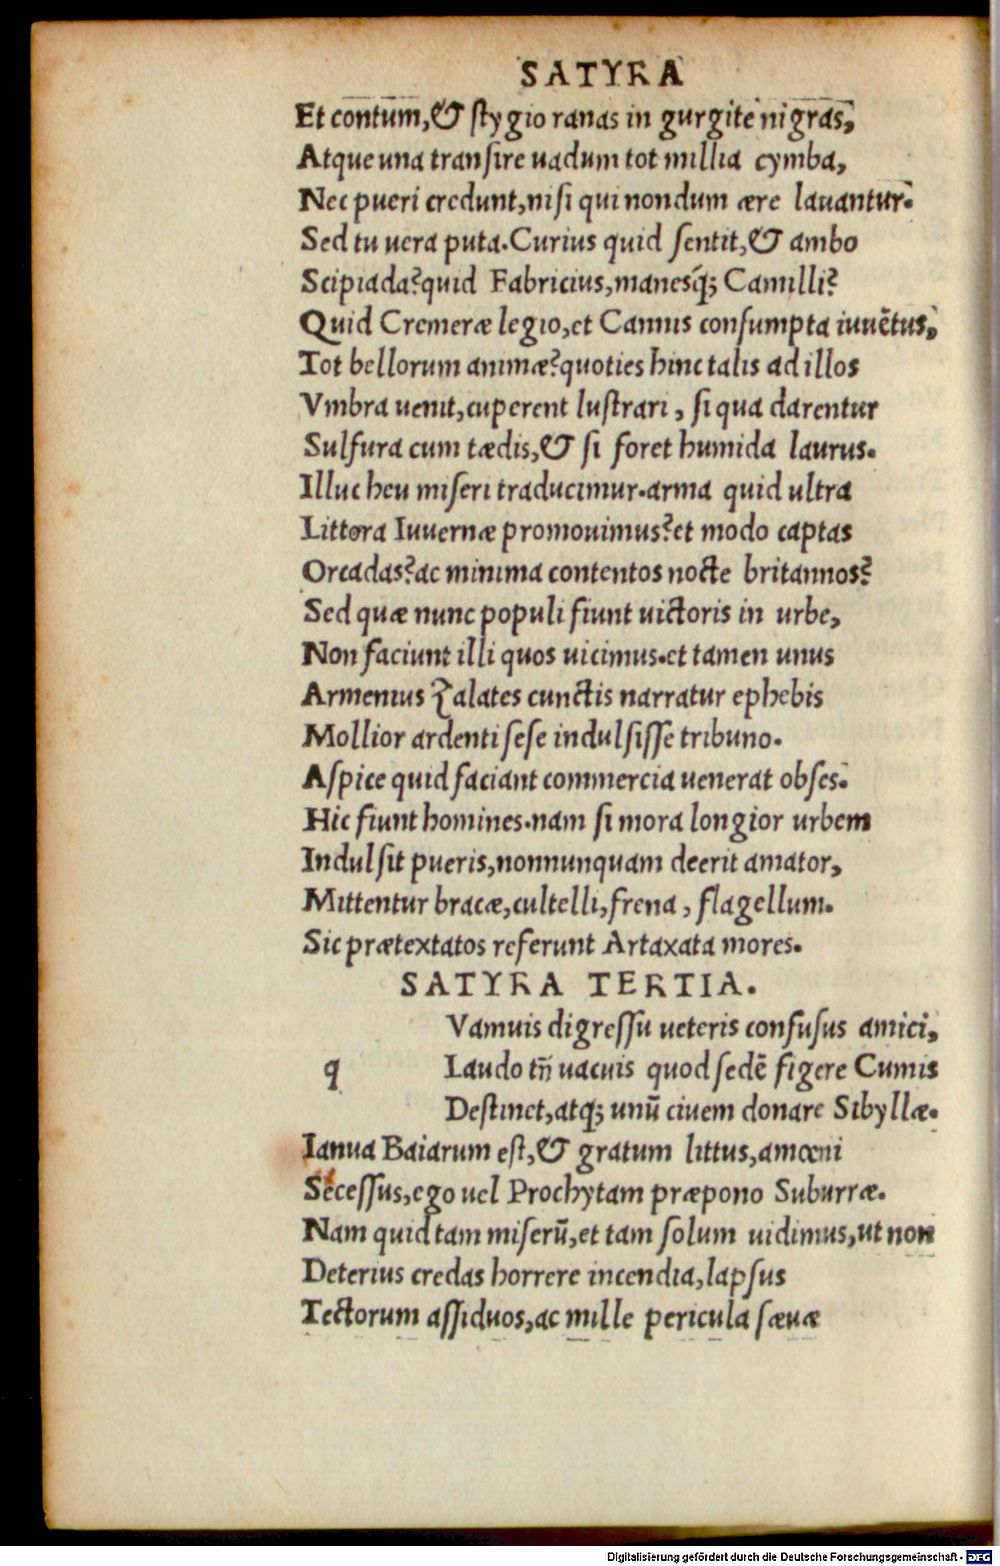 SATYRA
Et contum,& stygio ranas in gurgite nigras,
Atque una transire uadum tot millia cymba,
Nec pueri credunt,nisi qui nondum ære lauantur.
Sed tu uera puta.Curius quid sentit,& ambo
Scipiadæ?quid Fabricius,manesq; Camilli?
Quid Cremeræ legio,et Cannis consumpta iuuētus,
Tot bellorum animæ?quoties hinc talis ad illos
Vmbra uenit,cuperent lustrari, si qua darentur
Sulfura cum tædis,& si foret humida laurus.
Illuc heu miseri traducimur.arma quid ultra
Littora Iuuernæ promouimus?et modo captas
Orcadas?ac minima contentos nocte britannos?
Sed quæ nunc populi fiunt uictoris in urbe,
Non faciunt illi quos uicimus.et tamen unus
Armenius Zalates cunctis narratur ephebis
Mollior ardenti sese indulsisse tribuno.
Aspice quid faciant commercia uenerat obses.
Hic fiunt homines.nam si mora longior urbem
Indulsit pueris,nonnunquam deerit amator,
Mittentur bracæ,cultelli,frena, flagellum.
Sic prætextatos referunt Artaxata mores.
SATYRA TERTIA.
q Vamuis digressu ueteris confusus amici,
Laudo tñ uacuis quod sedē figere Cumis
Destinet,atq; unū ciuem donare Sibyllæ.
Ianua Baiarum est,& gratum littus,amœni
Secessus,ego uel Prochytam præpono Suburræ.
Nam quid tam miserū,et tam solum uidimus,ut non
Deterius credas horrere incendia,lapsus
Tectorum assiduos,ac mille pericula sæuæ
Digitalisierung gefördert durch die Deutsche Forschungsgemeinschaft - DFG